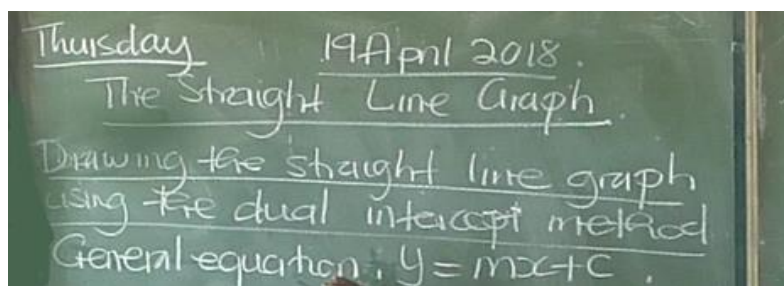 Thursday 19 April 2018.
The Straight Line Graph.
Drawing the straight line graph
using the dual intercept method
General equation, y = mx+c.